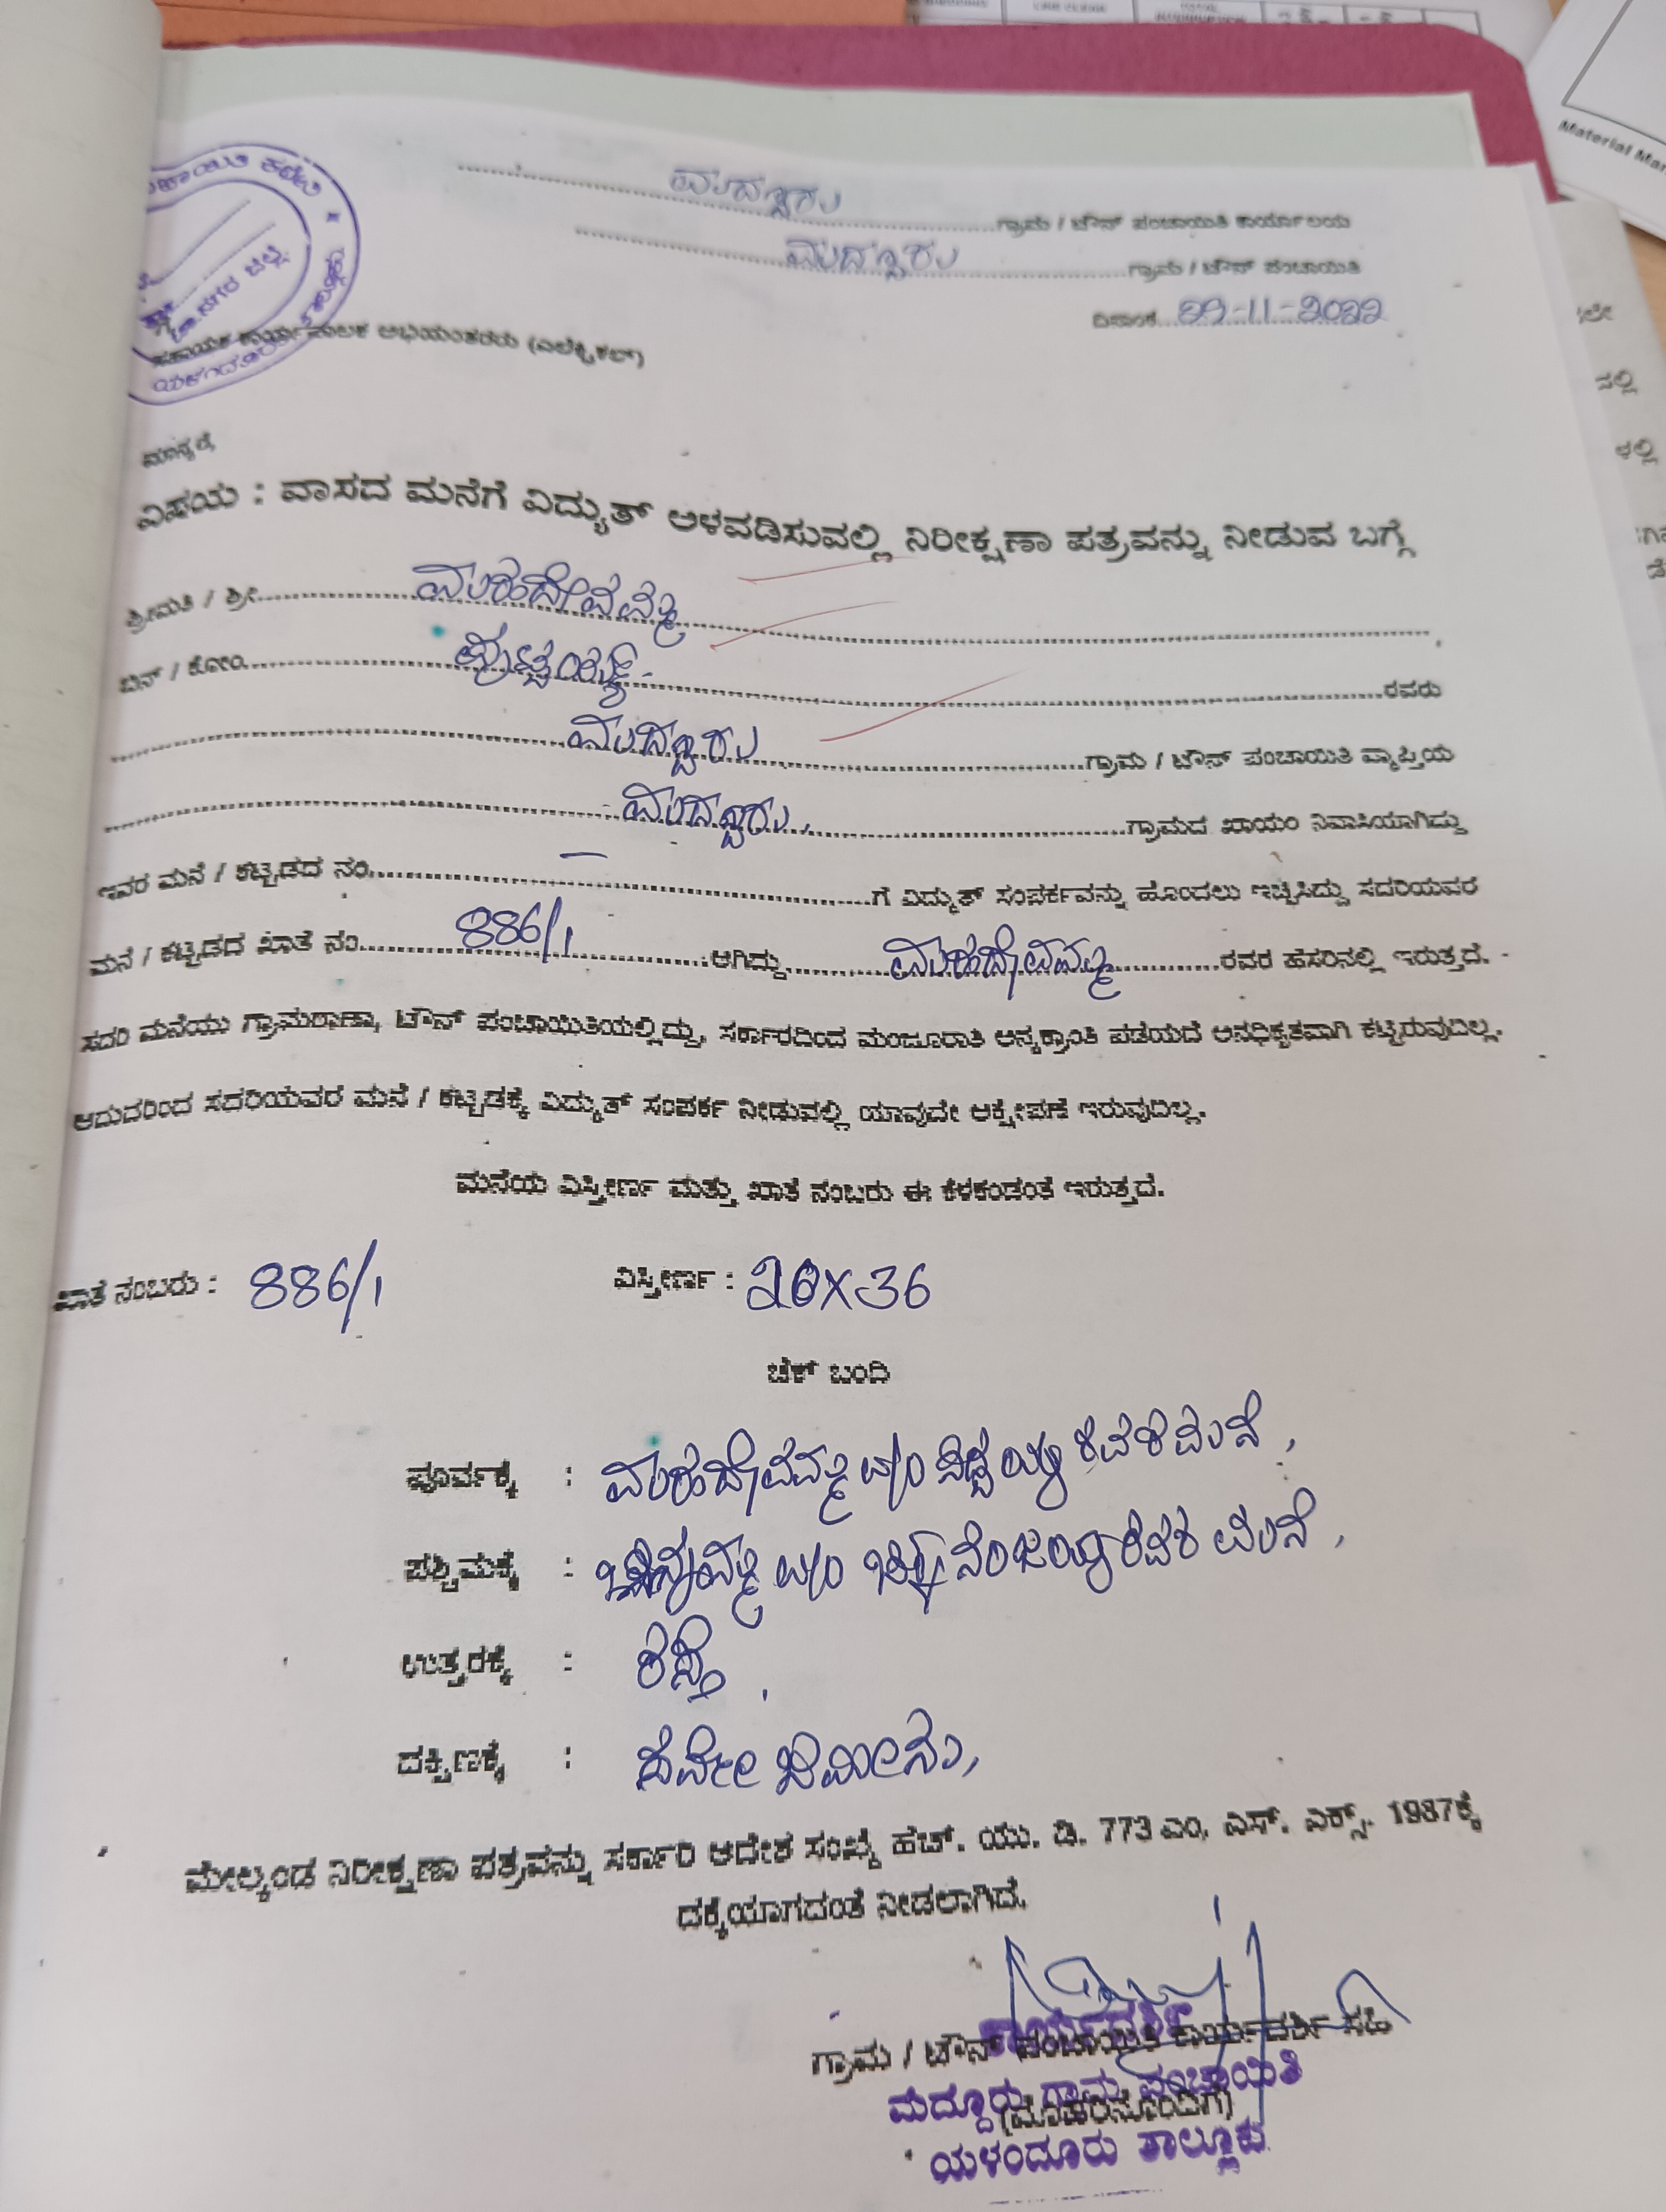 ಮದ್ದೂರು ಗ್ರಾಮ / ಟೌನ್ ಪಂಚಾಯಿತಿ ಕಾರ್ಯಾಲಯ
ಮದ್ದೂರು ಗ್ರಾಮ / ಟೌನ್ ಪಂಚಾಯಿತಿ
ದಿನಾಂಕ 29-11-2022
ಸಹಾಯಕ ಕಾರ್ಯಪಾಲಕ ಅಭಿಯಂತರರು (ಎಲೆಕ್ಟ್ರಿಕಲ್)
ಮಾನ್ಯರೆ,
ವಿಷಯ : ವಾಸದ ಮನೆಗೆ ವಿದ್ಯುತ್ ಅಳವಡಿಸುವಲ್ಲಿ ನಿರೀಕ್ಷಣಾ ಪತ್ರವನ್ನು ನೀಡುವ ಬಗ್ಗೆ
ಶ್ರೀಮತಿ / ಶ್ರೀ ಮಹದೇವಮ್ಮ
ಬಿನ್ / ಕೋಂ ಪುಟ್ಟಯ್ಯ ರವರು
ಮದ್ದೂರು ಗ್ರಾಮ / ಟೌನ್ ಪಂಚಾಯಿತಿ ವ್ಯಾಪ್ತಿಯ
ಮದ್ದೂರು, ಗ್ರಾಮದ ಖಾಯಂ ನಿವಾಸಿಯಾಗಿದ್ದು
ಇವರ ಮನೆ / ಕಟ್ಟಡದ ನಂ. — ಗೆ ವಿದ್ಯುತ್ ಸಂಪರ್ಕವನ್ನು ಹೊಂದಲು ಇಚ್ಛಿಸಿದ್ದು ಸದರಿಯವರ
ಮನೆ / ಕಟ್ಟಡದ ಖಾತೆ ನಂ. 886/1 ಆಗಿದ್ದು ಮಹದೇವಮ್ಮ ರವರ ಹೆಸರಿನಲ್ಲಿ ಇರುತ್ತದೆ.
ಸದರಿ ಮನೆಯು ಗ್ರಾಮಠಾಣಾ, ಟೌನ್ ಪಂಚಾಯಿತಿಯಲ್ಲಿದ್ದು, ಸರ್ಕಾರದಿಂದ ಮಂಜೂರಾತಿ ಅನ್ಯಕ್ರಾಂತಿ ಪಡೆಯದೆ ಅನಧಿಕೃತವಾಗಿ ಕಟ್ಟಿರುವುದಿಲ್ಲ.
ಆದುದರಿಂದ ಸದರಿಯವರ ಮನೆ / ಕಟ್ಟಡಕ್ಕೆ ವಿದ್ಯುತ್ ಸಂಪರ್ಕ ನೀಡುವಲ್ಲಿ ಯಾವುದೇ ಆಕ್ಷೇಪಣೆ ಇರುವುದಿಲ್ಲ.
ಮನೆಯ ವಿಸ್ತೀರ್ಣ ಮತ್ತು ಖಾತೆ ನಂಬರು ಈ ಕೆಳಕಂಡಂತೆ ಇರುತ್ತದೆ.
ಖಾತೆ ನಂಬರು : 886/1 ವಿಸ್ತೀರ್ಣ : 20X36
ಚೆಕ್ ಬಂದಿ
ಪೂರ್ವಕ್ಕೆ : ಮಹದೇವಮ್ಮ w/o ಸಿದ್ದಯ್ಯ ರವರ ಮನೆ,
ಪಶ್ಚಿಮಕ್ಕೆ : w/o ನಂಜಯ್ಯ ರವರ ಮನೆ,
ಉತ್ತರಕ್ಕೆ : ರಸ್ತೆ,
ದಕ್ಷಿಣಕ್ಕೆ : ಸರ್ವೇ ಜಮೀನು,
ಮೇಲ್ಕಂಡ ನಿರೀಕ್ಷಣಾ ಪತ್ರವನ್ನು ಸರ್ಕಾರಿ ಆದೇಶ ಸಂಖ್ಯೆ ಹೆಚ್. ಯು. ಡಿ. 773 ಎಂ. ಎಸ್. ಎಕ್ಸ್. 1987ಕ್ಕೆ
ದಕ್ಕೆಯಾಗದಂತೆ ನೀಡಲಾಗಿದೆ.
ಕಾರ್ಯದರ್ಶಿ
ಗ್ರಾಮ / ಟೌನ್ ಪಂಚಾಯಿತಿ ಕಾರ್ಯದರ್ಶಿ ಸಹಿ
ಮದ್ದೂರು ಗ್ರಾಮ ಪಂಚಾಯಿತಿ
(ಮೊಹರಿನೊಂದಿಗೆ)
ಯಳಂದೂರು ತಾಲ್ಲೂಕು